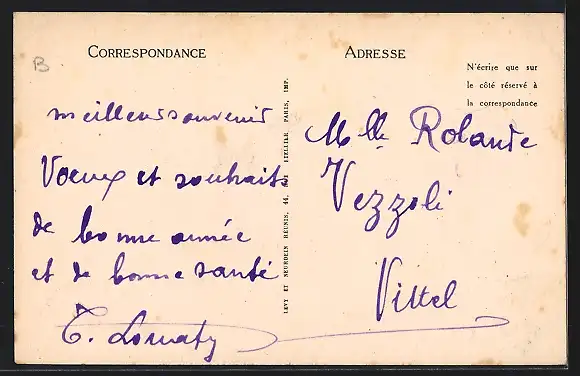 B
CORRESPONDANCE
ADRESSE
N'écrire que sur
le côté réservé à
la correspondance
meilleurs souvenirs
Voeux et souhaits
de bonne année
et de bonne santé
LEVY ET NEURDEIN REUNIS, 44, RUE LETELLIER, PARIS, IMP.
Mlle Rolande
Vezzoli
Vittel